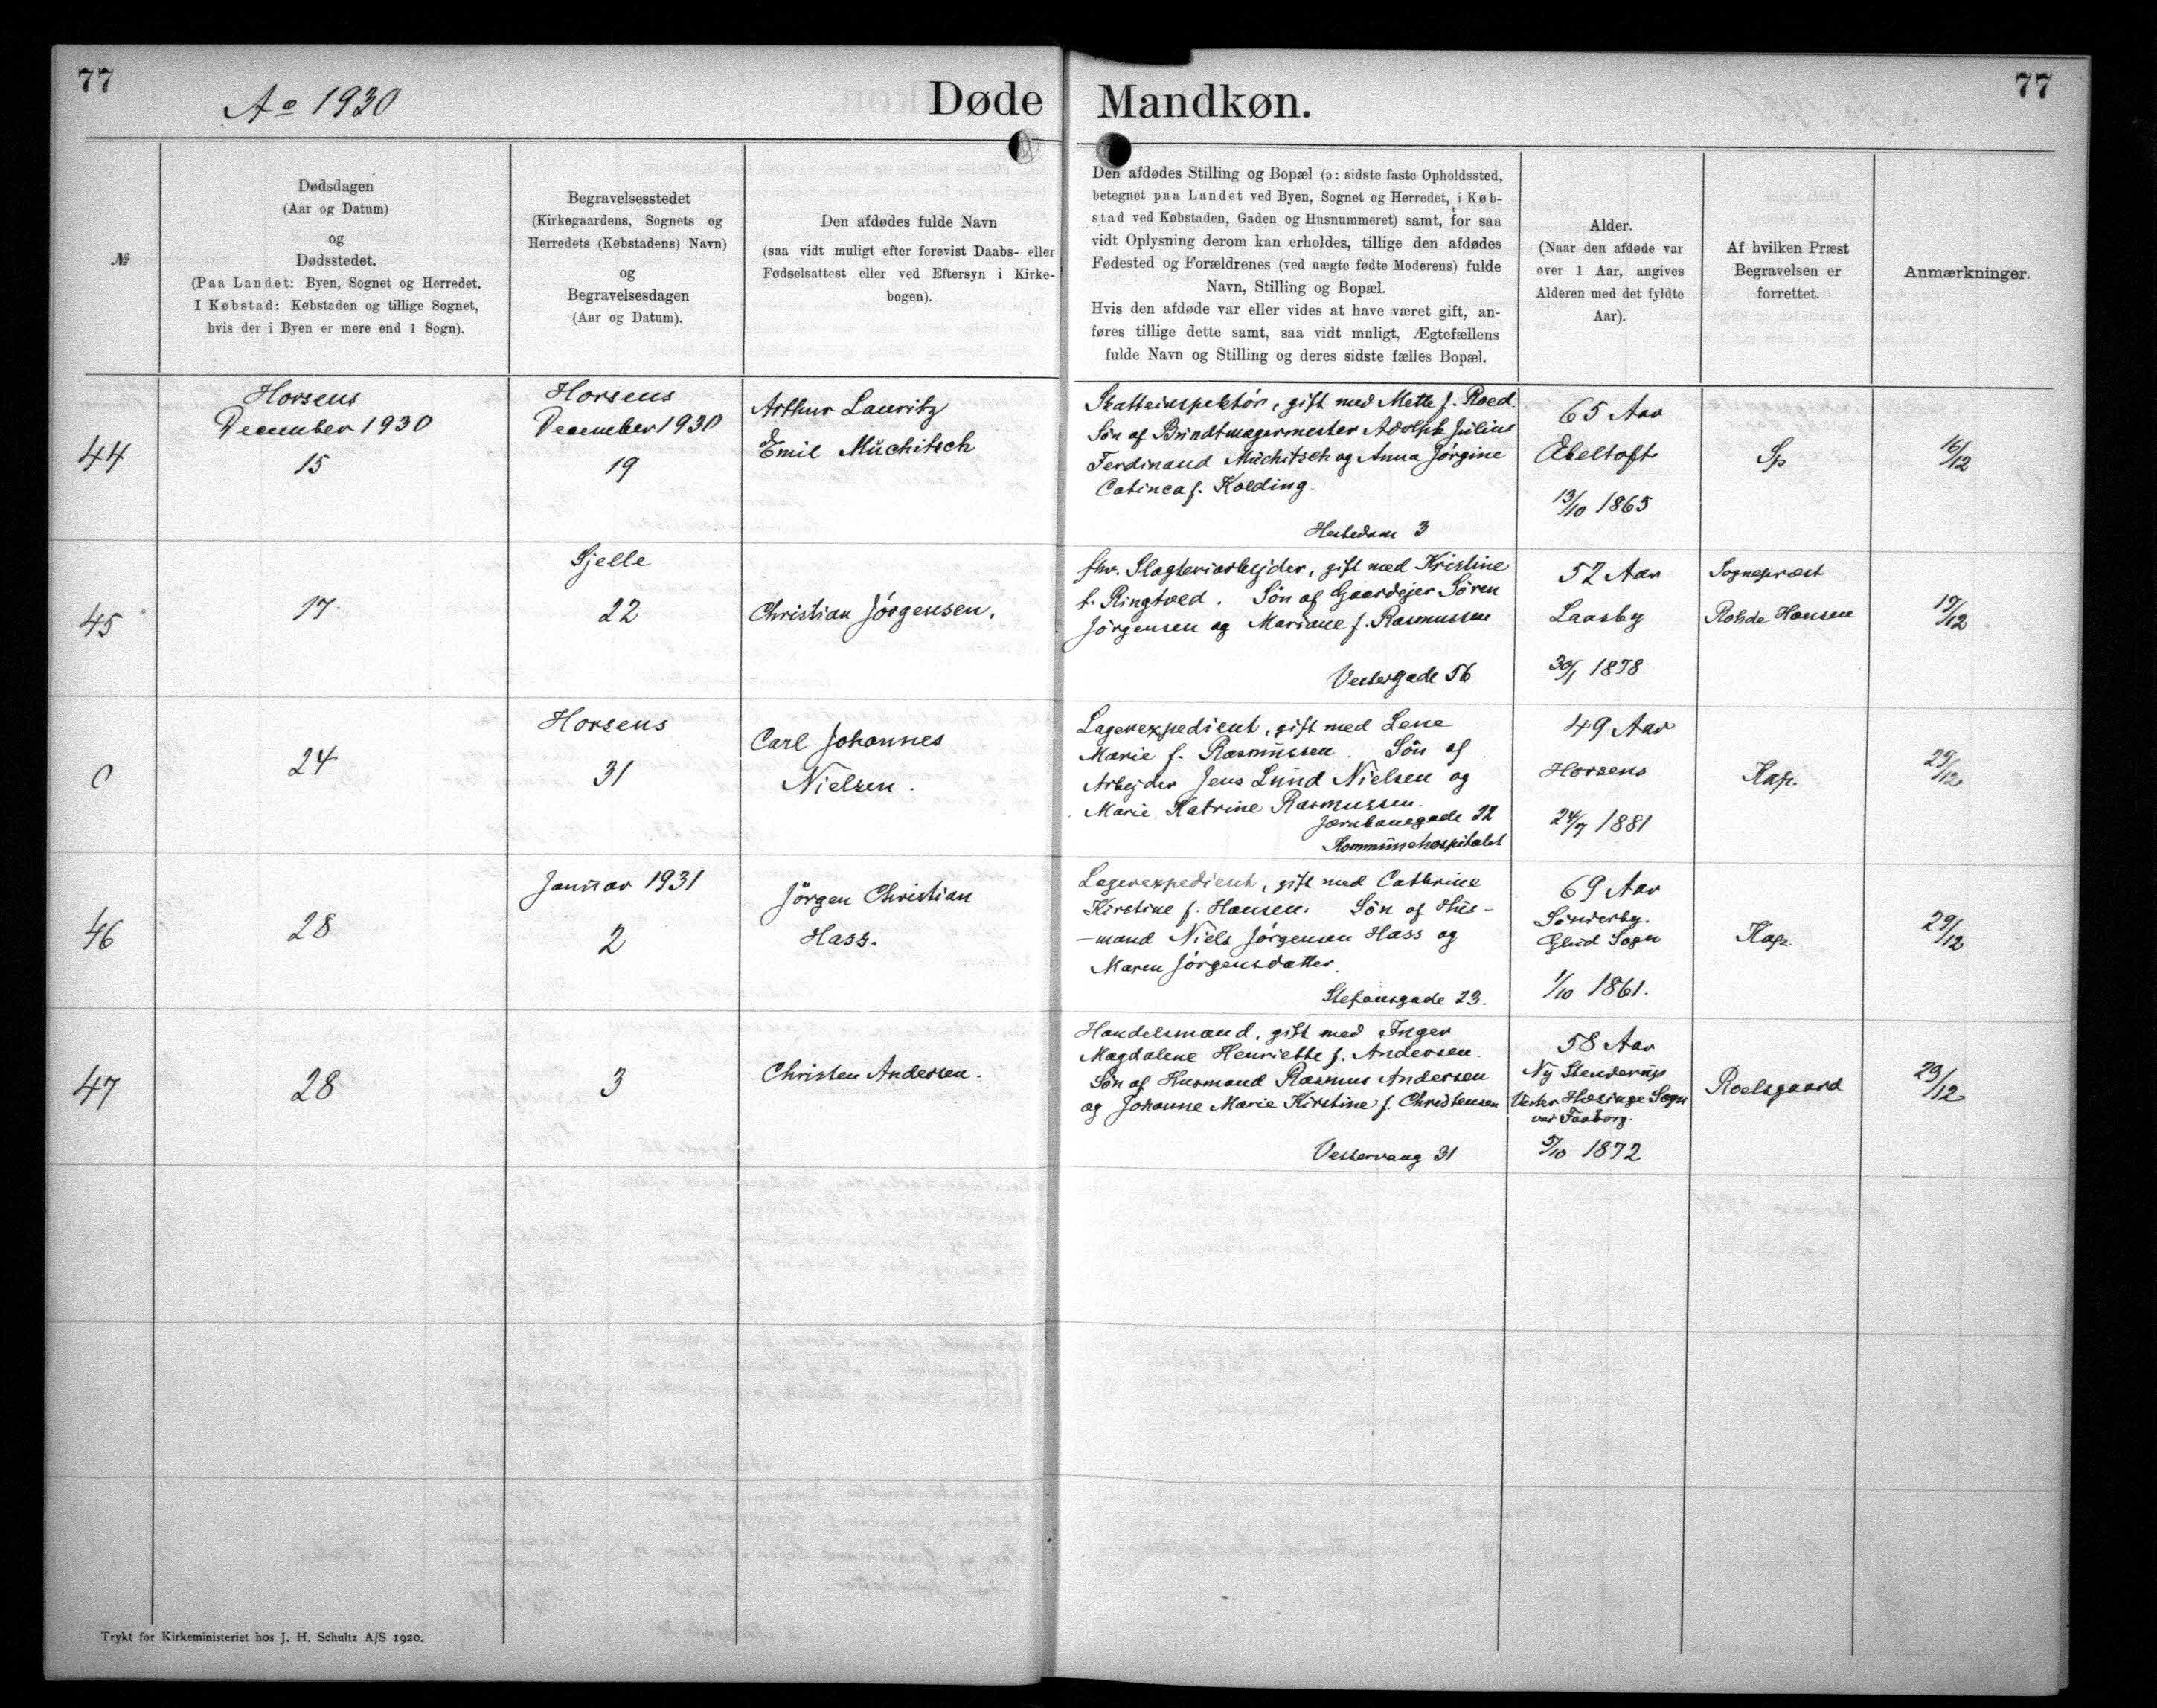 77
Ao 1930
Døde
Mandkøn.
77
№
Dødsdagen
(Aar og Datum)
og
Dødsstedet.
(Paa Landet: Byen, Sognet og Herredet.
I Købstad: Købstaden og tillige Sognet,
hvis der i Byen er mere end 1 Sogn).
Begravelsesstedet
(Kirkegaardens, Sognets og
Herredets (Købstadens) Navn)
og
Begravelsesdagen
(Aar og Datum).
Den afdødes fulde Navn
(saa vidt muligt efter forevist Daabs- eller
Fødselsattest eller ved Eftersyn i Kirke-
bogen).
Den afdødes Stilling og Bopæl (ɔ: sidste faste Opholdssted,
betegnet paa Landet ved Byen, Sognet og Herredet, i Køb-
stad ved Købstaden, Gaden og Husnummeret) samt, for saa
vidt Oplysning derom kan erholdes, tillige den afdødes
Fødested og Forældrenes (ved uægte fødte Moderens) fulde
Navn, Stilling og Bopæl.
Hvis den afdøde var eller vides at have været gift, an-
føres tillige dette samt, saa vidt muligt, Ægtefællens
fulde Navn og Stilling og deres sidste fælles Bopæl.
Alder.
(Naar den afdøde var
over 1 Aar, angives
Alderen med det fyldte
Aar).
Af hvilken Præst
Begravelsen er
forrettet.
Anmærkninger.
44
Horsens
December 1930
15
Horsens
December 1930
19
Arthur Lauritz
Emil Müchitsch
Skatteinspektör, gift med Mette f. Roed.
Søn af Bundtmagermester Adolph Julius
Ferdinand Müchitsch og Anna Jørgine
Catinca f. Kolding.
Hestedam 3
65 Aar
Æbeltoft
13/10 1865
Sp
16/12
45
17
Gjelle
22
Christian Jörgensen.
fhv. Slagteriarbejder, gift med Kristine
f. Ringtved. Søn af Gaardejer Søren
Jörgensen og Mariane f. Rasmussen
Vestergade 56
52 Aar
Laasby
30/1 1878
Sognepræst
Rohde Hansen
17/12
0
24
Horsens
31
Carl Johannes
Nielsen.
Lagerexpedient, gift med Lene
Marie f. Rasmussen. Søn af
Arbejder Jens Lund Nielsen og
Marie Katrine Rasmussen.
Jernbanegade 22
Kommunehospitalet
49 Aar
Horsens
24/7 1881
Kap.
29/12
46
28
Januar 1931
2
Jörgen Christian
Hass.
Lagerexpedient, gift med Cathrine
Kirstine f. Hansen. Søn af Hus-
-mand Niels Jørgensen Hass og
Maren Jørgensdatter.
Stefansgade 23.
69 Aar
Sønderby.
Glud Sogn
1/10 1861.
Kap.
29/12
47
28
3
Christen Andersen.
Handelsmand, gift med Inger
Magdalene Henriette f. Andersen.
Søn af Husmand Rasmus Andersen
og Johanne Marie Kirstine f. Christensen
Vestervang 31
58 Aar
Ny Stenderup
Vester Hæsinge Sogn
ved Faaborg.
5/10 1872
Roelsgaard
29/12
Trykt for Kirkeministeriet hos J. H. Schultz A/S 1920.